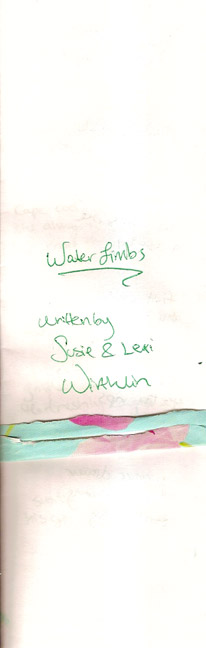 Water Limbs
written by
Susie & Lexi
Wirthlin